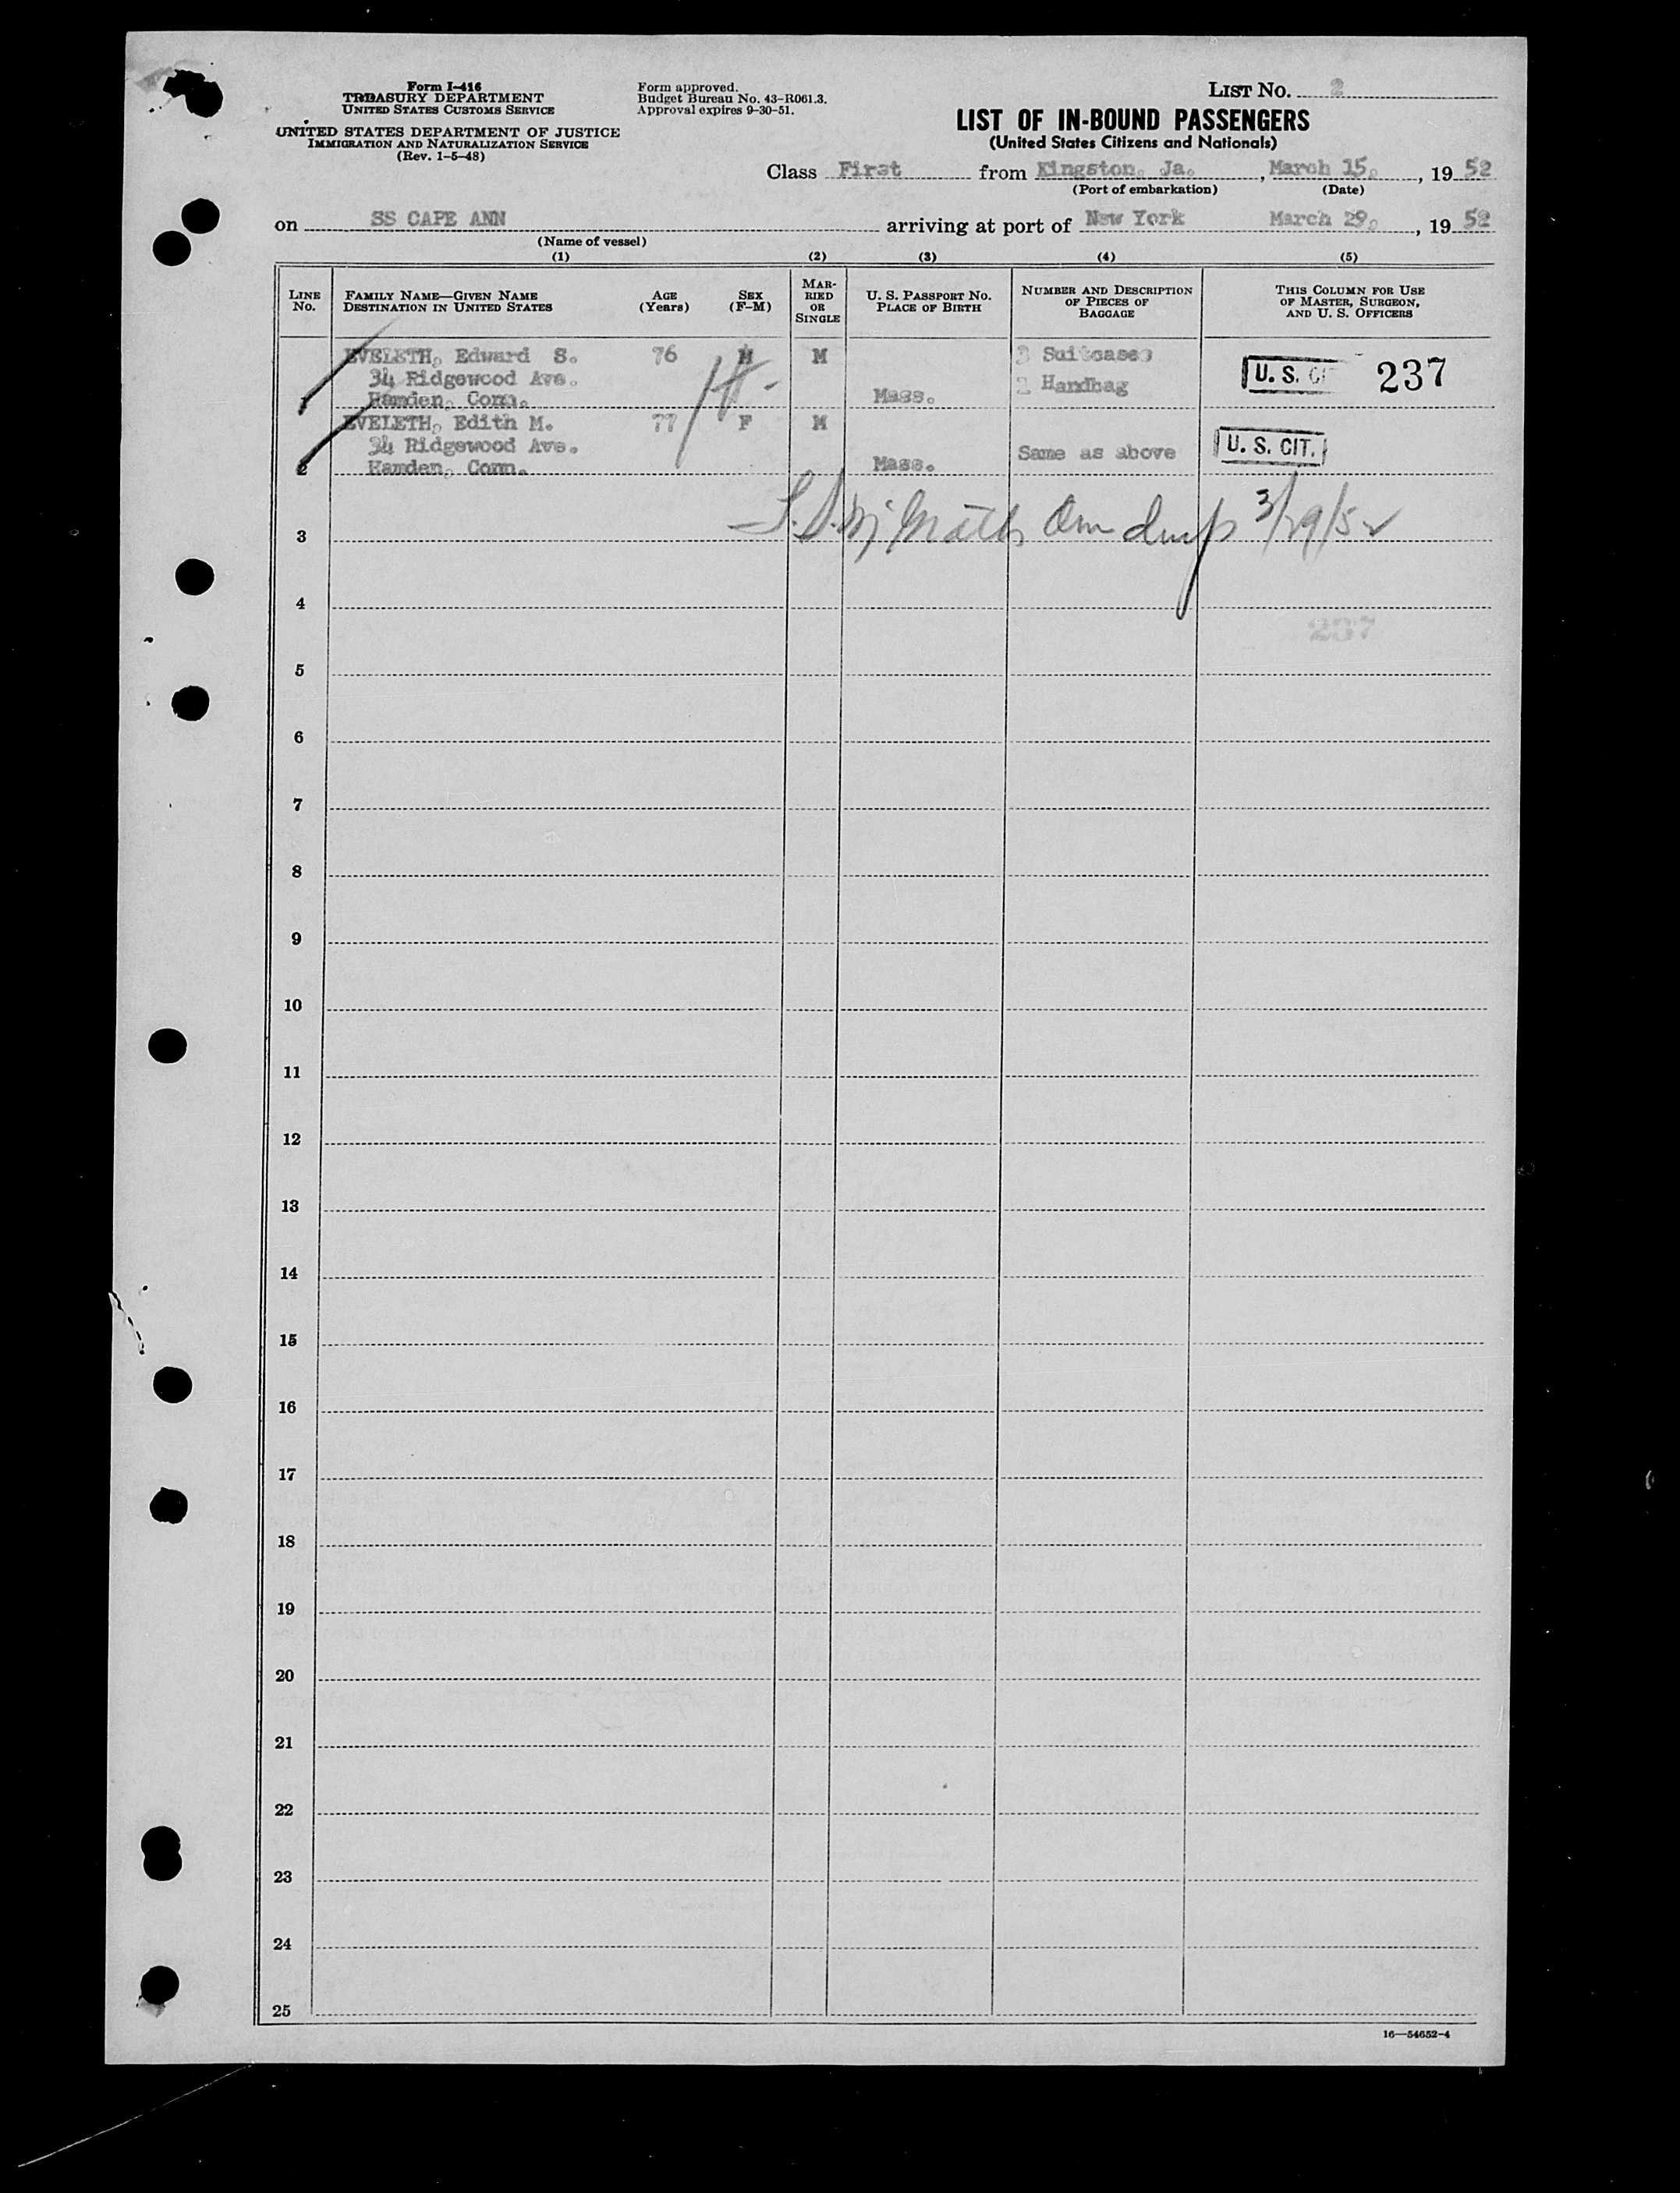 Form I-416
TREASURY DEPARTMENT
UNITED STATES CUSTOMS SERVICE
UNITED STATES DEPARTMENT OF JUSTICE
IMMIGRATION AND NATURALIZATION SERVICE
(Rev. 1-5-48)
Form approved.
Budget Bureau No. 43-R061.3.
Approval expires 9-30-51.
LIST No. 2
LIST OF IN-BOUND PASSENGERS
(United States Citizens and Nationals)
Class First from Kingston, Ja., March 15, 19 52
(Port of embarkation) (Date)
on SS CAPE ANN arriving at port of New York March 29, 19 52
(Name of vessel)
(1) (2) (3) (4) (5)
LINE No.
FAMILY NAME—GIVEN NAME
DESTINATION IN UNITED STATES
AGE (Years)
SEX (F-M)
MAR-
RIED
OR
SINGLE
U. S. PASSPORT No.
PLACE OF BIRTH
NUMBER AND DESCRIPTION
OF PIECES OF
BAGGAGE
THIS COLUMN FOR USE
OF MASTER, SURGEON,
AND U. S. OFFICERS
EVELETH, Edward S. 76 M M Suitcases
34 Ridgewood Ave. Handbag U. S. CIT 237
1 Hamden, Conn. Mass.
EVELETH, Edith M. 77 F M
34 Ridgewood Ave. Same as above U. S. CIT.
2 Hamden, Conn. Mass.
3/29/52
3
4
237
5
6
7
8
9
10
11
12
13
14
15
16
17
18
19
20
21
22
23
24
25
16—54652-4